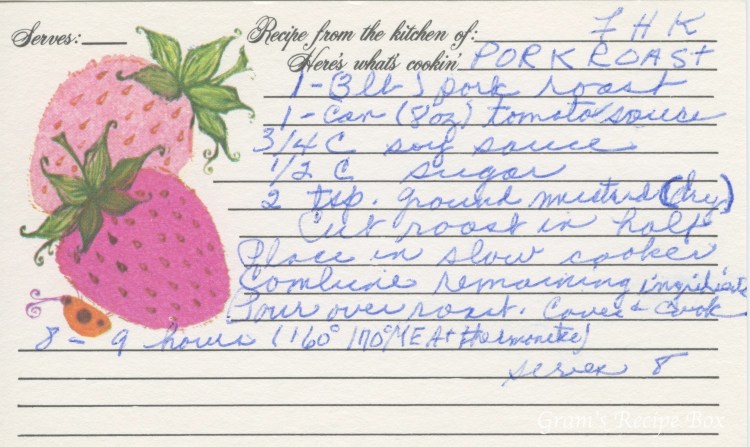 Serves: Recipe from the kitchen of: F H K
Here's what's cookin' PORK ROAST
1-(3 lb) pork roast
1-can (8 oz) tomato sauce
3/4 C soy sauce
1/2 C sugar
2 tsp. ground mustard (dry)
Cut roast in half
Place in slow cooker
Combine remaining ingredients
Pour over roast. Cover & cook
8-9 hours (160° 170° MEAt thermometer)
serves 8
Gram's Recipe Box